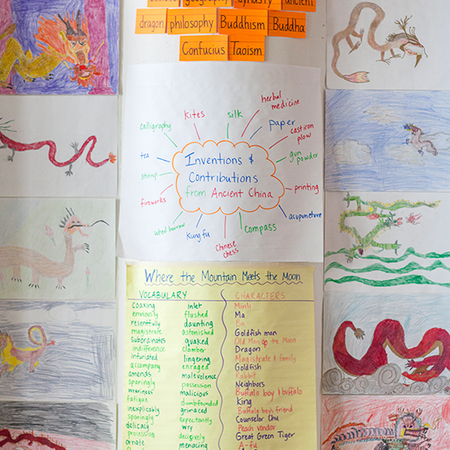 geography dynasty ancient
dragon philosophy Buddhism Buddha
Confucius Taoism
Kites
silk
herbal medicine
calligraphy
paper
cast iron plow
tea
gun powder
Inventions &
Contributions
from Ancient China
stamp
printing
fireworks
acupuncture
wheel barrow
Kung fu
Chinese chess
compass
Where the Mountain Meets the Moon
VOCABULARY CHARACTERS
coaxing inlet Minli
enviously flushed Ma
resentfully daunting
magistrate astonished Goldfish man
subordinates quaked Old Man of the Moon
indifference clamber Dragon
infuriated lingering Magistrate & family
accompany enraged Goldfish
amends malevolence Rabbit
sparingly possession Neighbors
intricate malicious Buffalo boy & buffalo
fatique dumbfounded King
inexplicably grimaced Buffalo boy's friend
sparingly expectantly Counselor Chu
delicacy wry Peach vendor
procession decisively Great Green Tiger
ornate menacing A-fu